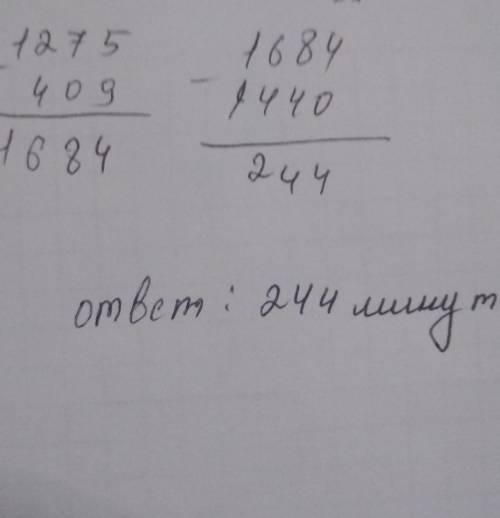 1275
409
1684
- 1684
1440
244
ответ: 244 минут